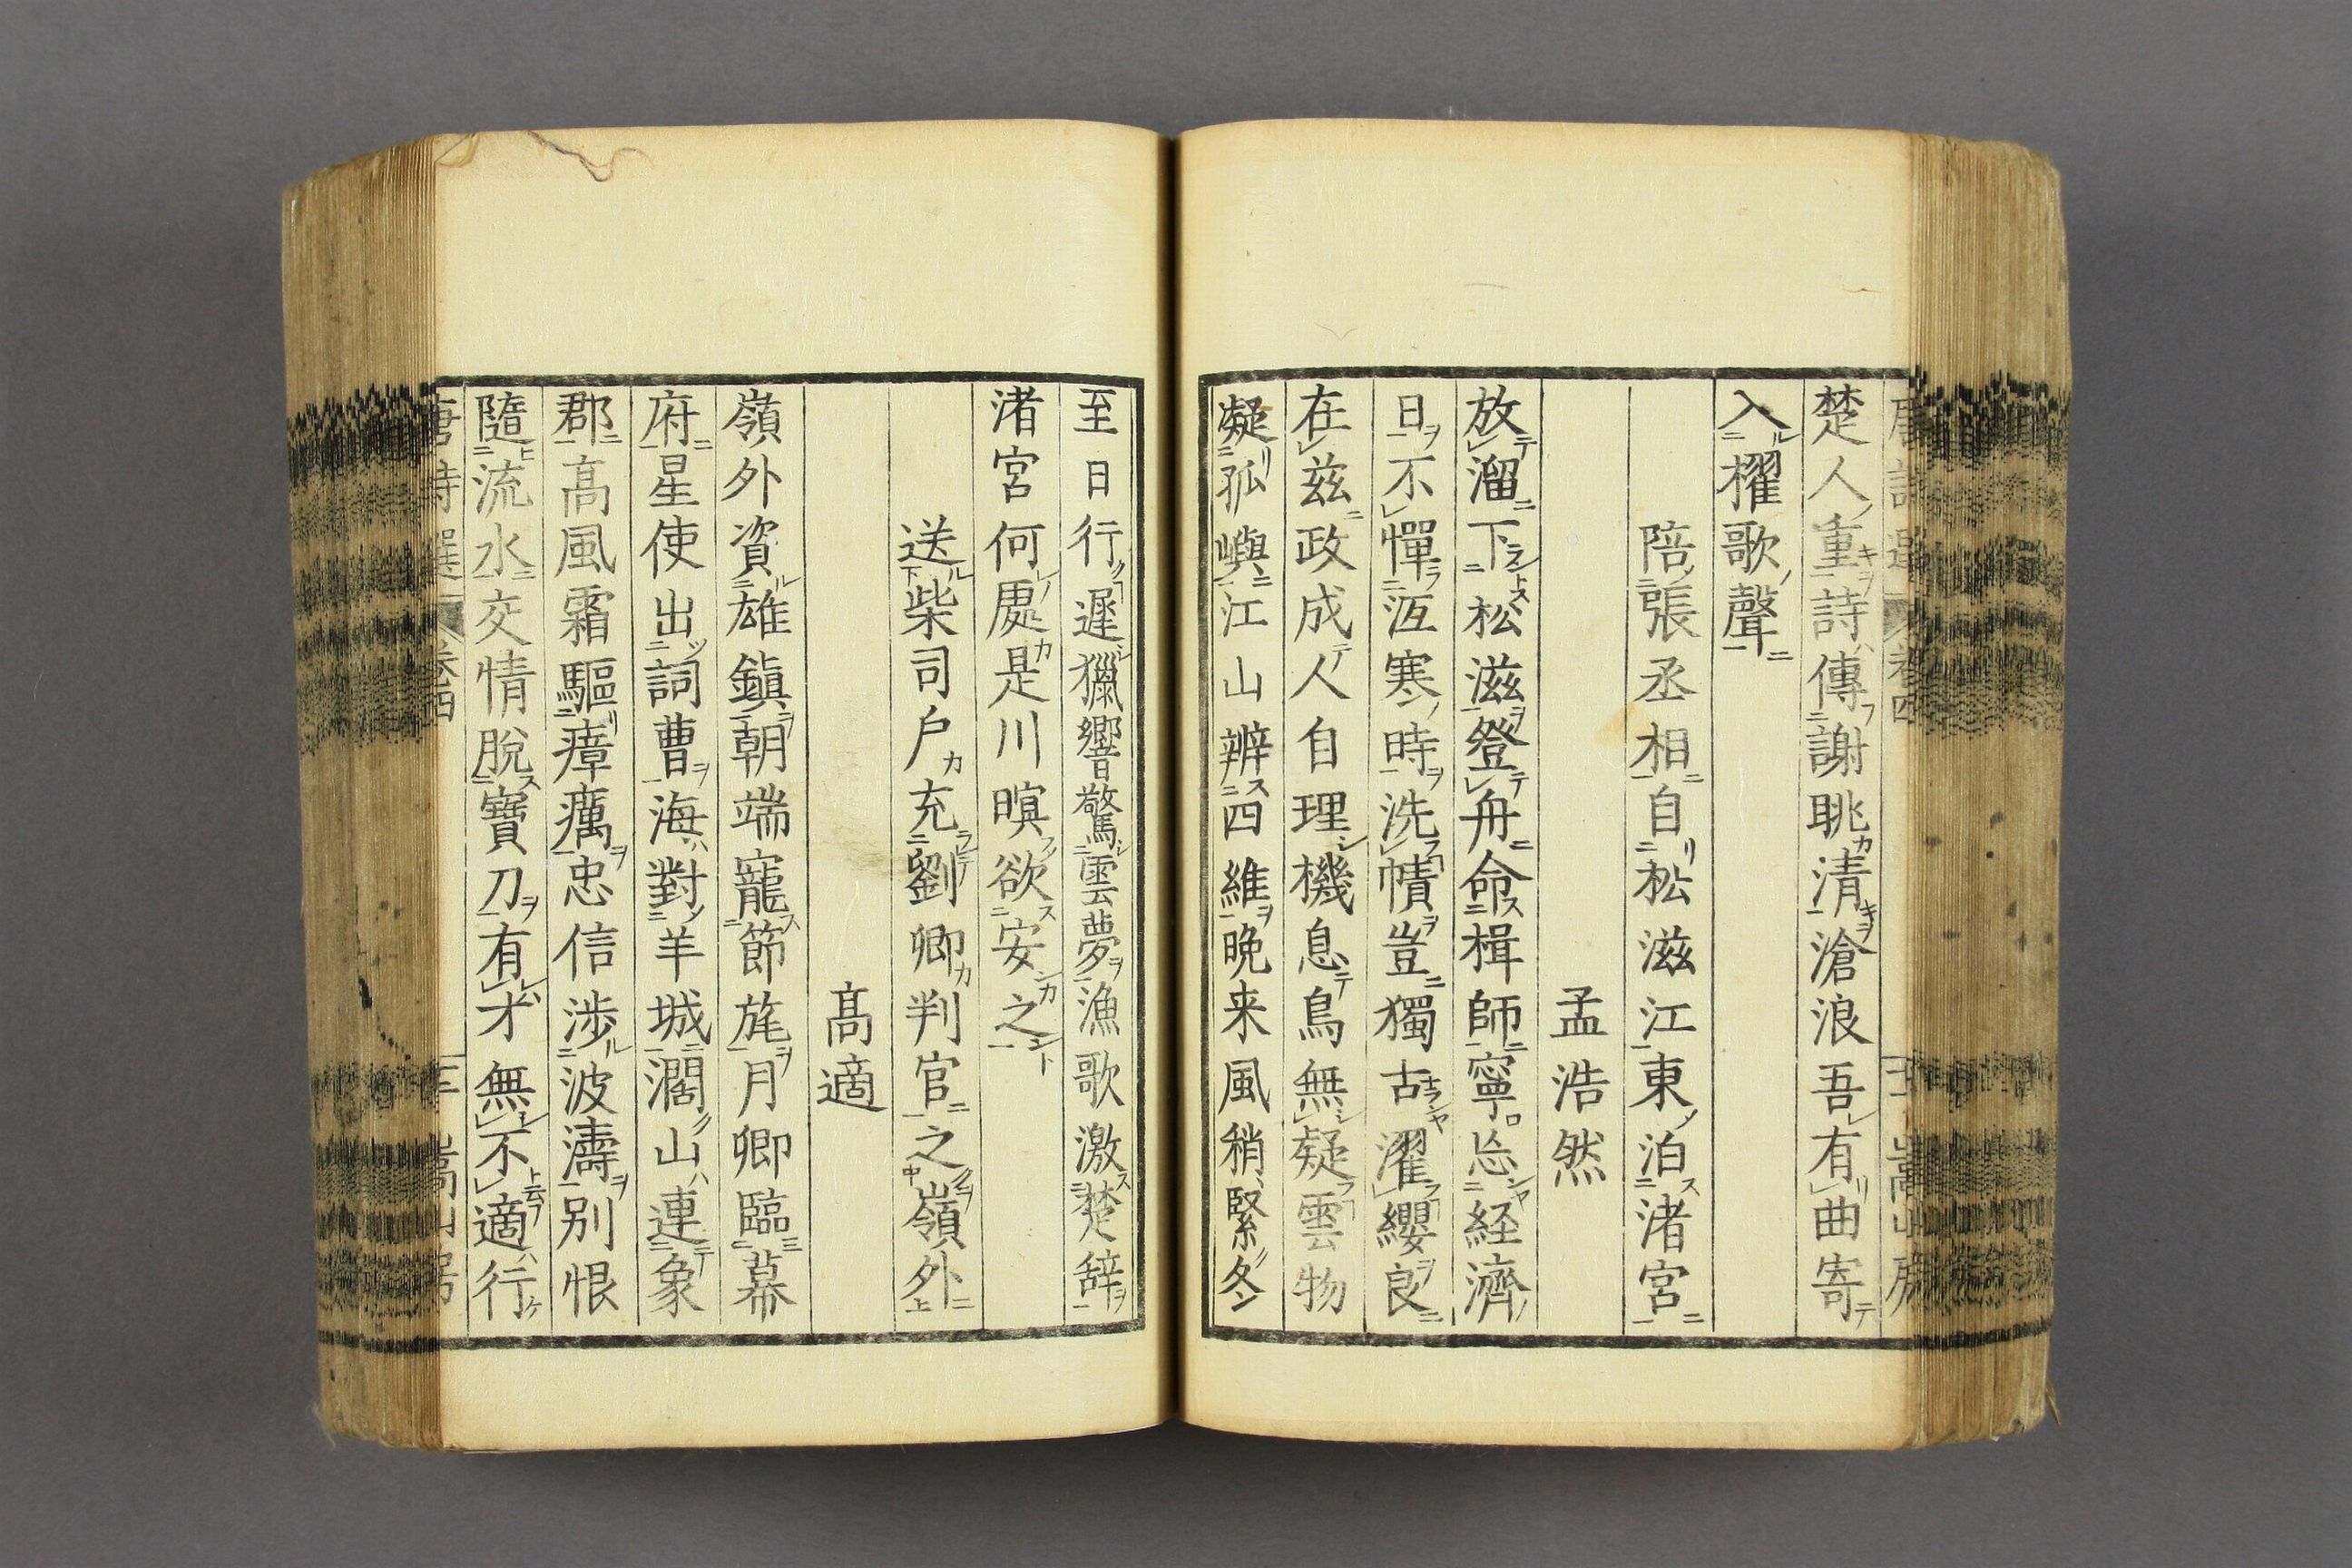 楚人重詩傳謝眺清滄浪吾有曲寄
入櫂歌聲
陪張丞相自松滋江東泊渚宮
孟浩然
放溜下松滋登舟命楫師寧忘経濟
日不憚沍寒時洗幘豈獨古濯纓良
在茲政成人自理機息鳥無疑雲物
凝孤嶼江山辨四維晩来風稍緊冬
至日行遲獵響驚雲夢漁歌激楚辞
渚宮何處是川暝欲安之
送柴司戶充劉卿判官之嶺外
髙適
嶺外資雄鎮朝端寵節旄月卿臨幕
府星使出詞曹海對羊城濶山連象
郡髙風霜驅瘴癘忠信渉波濤別恨
隨流水交情脫寶刀有才無不適行
唐詩選 卷四